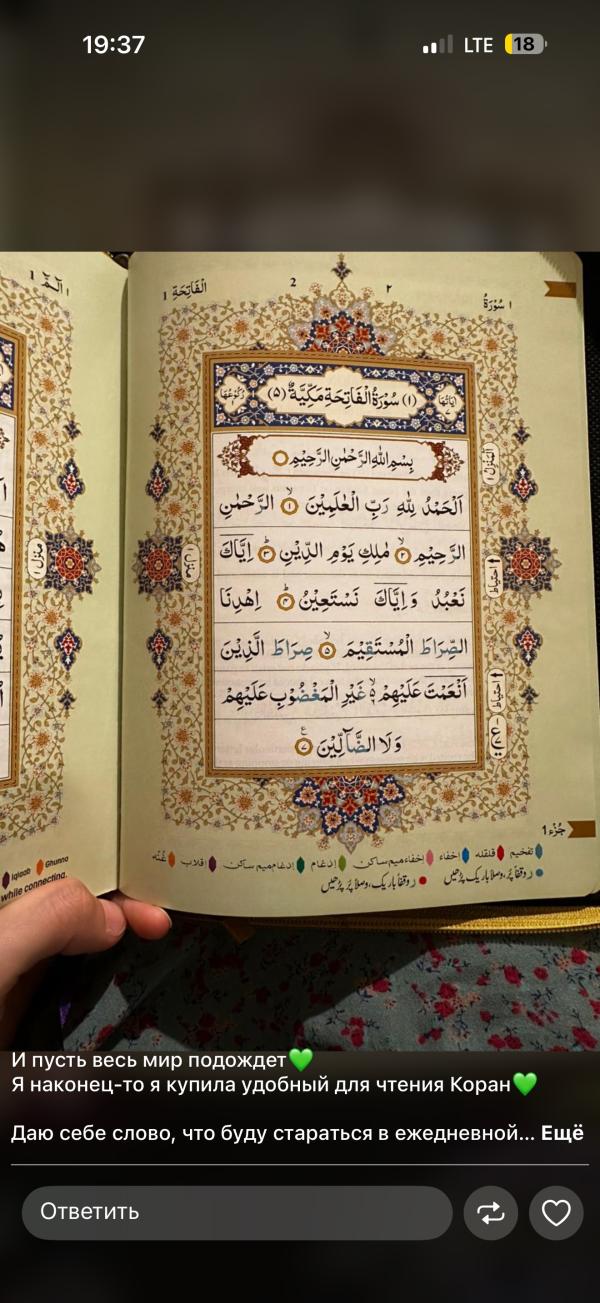 19:37
LTE 18
الٓمّٓ 1
الْفَاتِحَةِ 1
2
٢
سُوْرَةُ ١
اٰيَاتُهَا ٧
(١) سُوْرَةُ الْفَاتِحَةِ مَكِّيَّةٌ (٥)
رُكُوْعُهَا
بِسْمِ اللّٰهِ الرَّحْمٰنِ الرَّحِيْمِ
اَلْحَمْدُ لِلّٰهِ رَبِّ الْعٰلَمِيْنَ ۙ﴿١﴾ الرَّحْمٰنِ
الرَّحِيْمِ ۙ﴿٢﴾ مٰلِكِ يَوْمِ الدِّيْنِ ؕ﴿٣﴾ اِيَّاكَ
نَعْبُدُ وَ اِيَّاكَ نَسْتَعِيْنُ ؕ﴿٤﴾ اِهْدِنَا
الصِّرَاطَ الْمُسْتَقِيْمَ ۙ﴿٥﴾ صِرَاطَ الَّذِيْنَ
اَنْعَمْتَ عَلَيْهِمْ ۙ۬ۦ غَيْرِ الْمَغْضُوْبِ عَلَيْهِمْ
وَ لَا الضَّآلِّيْنَ ﴿٧﴾
اَلْمَنْزِل ١
احتیاط
احتیاط
منزل ١
منزل ١
جُزْء 1
تفخیم قلقله اخفاء اخفاءمیم ساکن ادغام ادغام میم ساکن اقلاب غُنّه
ر وقفاً پُر، وصلاً باریک پڑھیں ر وقفاً باریک، وصلاً پُر پڑھیں
Iqlaab Ghunna
while connecting.
И пусть весь мир подождет💚
Я наконец-то я купила удобный для чтения Коран💚
Даю себе слово, что буду стараться в ежедневной... Ещё
Ответить